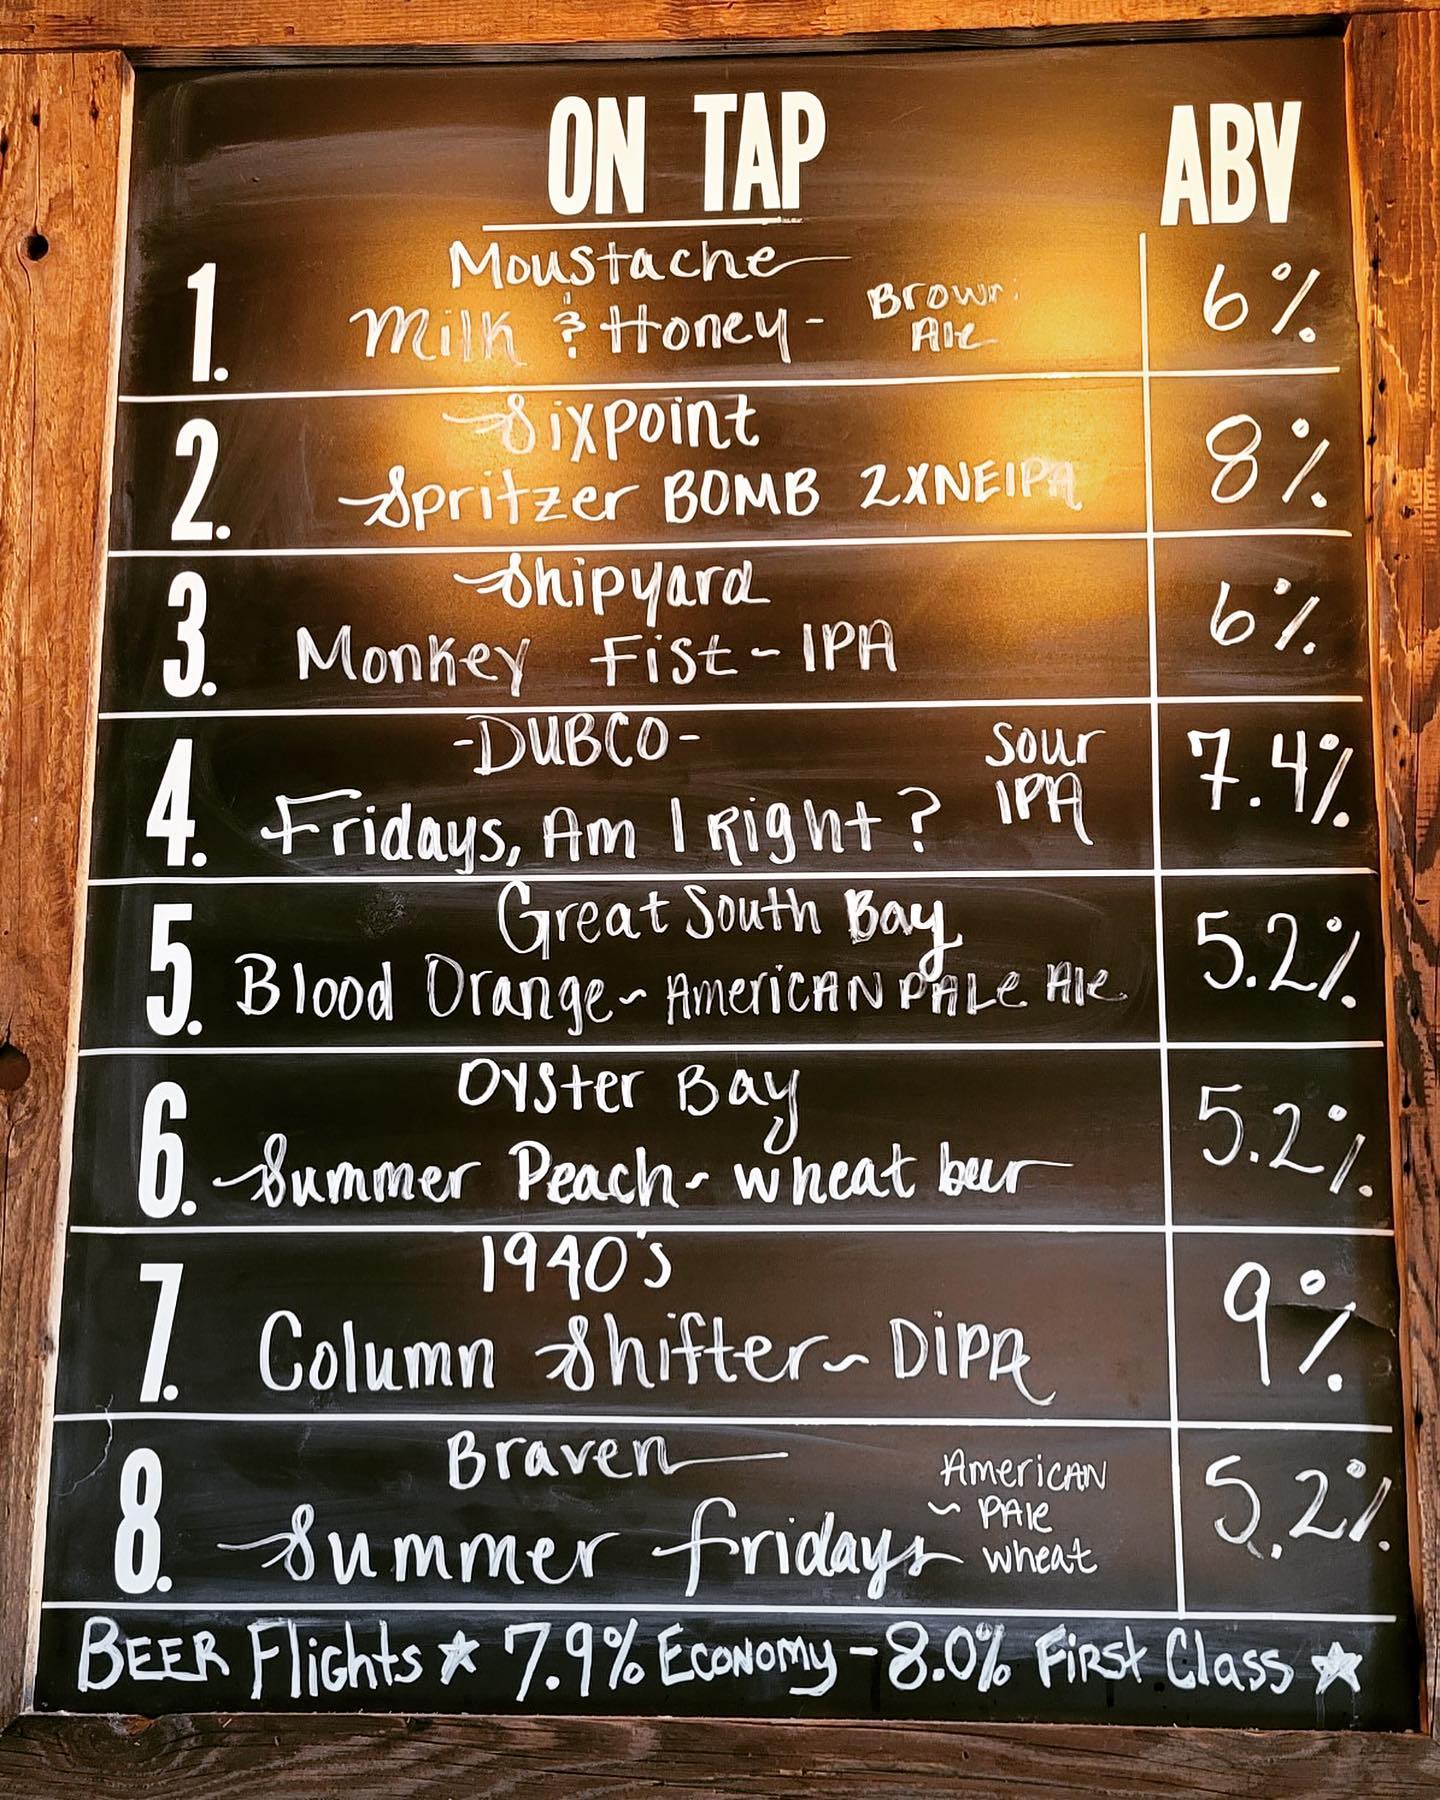 ON TAP ABV
1. Moustache
Milk & Honey - Brown Ale 6%
2. Sixpoint
Spritzer BOMB 2XNEIPA 8%
3. Shipyard
Monkey Fist ~ IPA 6%
4. -DUBCO-
Fridays, Am I Right? Sour IPA 7.4%
5. Great South Bay
Blood Orange ~ American Pale Ale 5.2%
6. Oyster Bay
Summer Peach ~ wheat beer 5.2%
7. 1940's
Column Shifter ~ DIPA 9%
8. Braven
Summer fridays ~ American Pale wheat 5.2%
BEER Flights ★ 7.9% Economy - 8.0% First Class ★